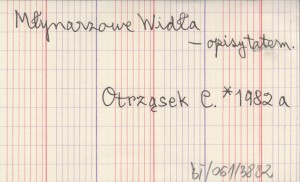 Młynarzowe Widła
– opisy tatern.
Otrząsek C. *1982 a
bf/061/3882